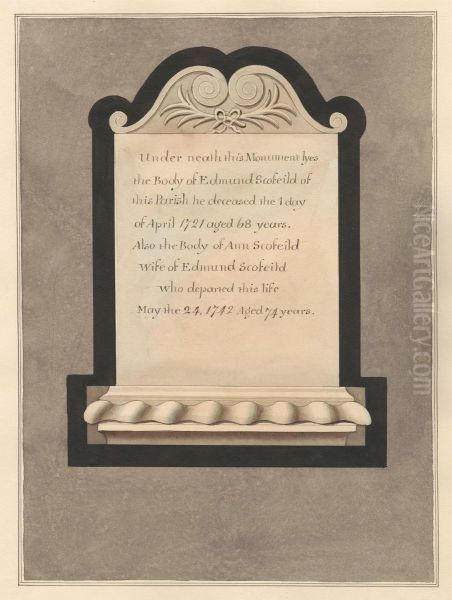 Under neath this Monument lyes
the Body of Edmund Scofeild of
this Parish he deceased the 1 day
of April 1721 aged 68 years.
Also the Body of Ann Scofeild
Wife of Edmund Scofeild
who departed this life
May the 24, 1742 Aged 74 years.
NiceArtGallery.com